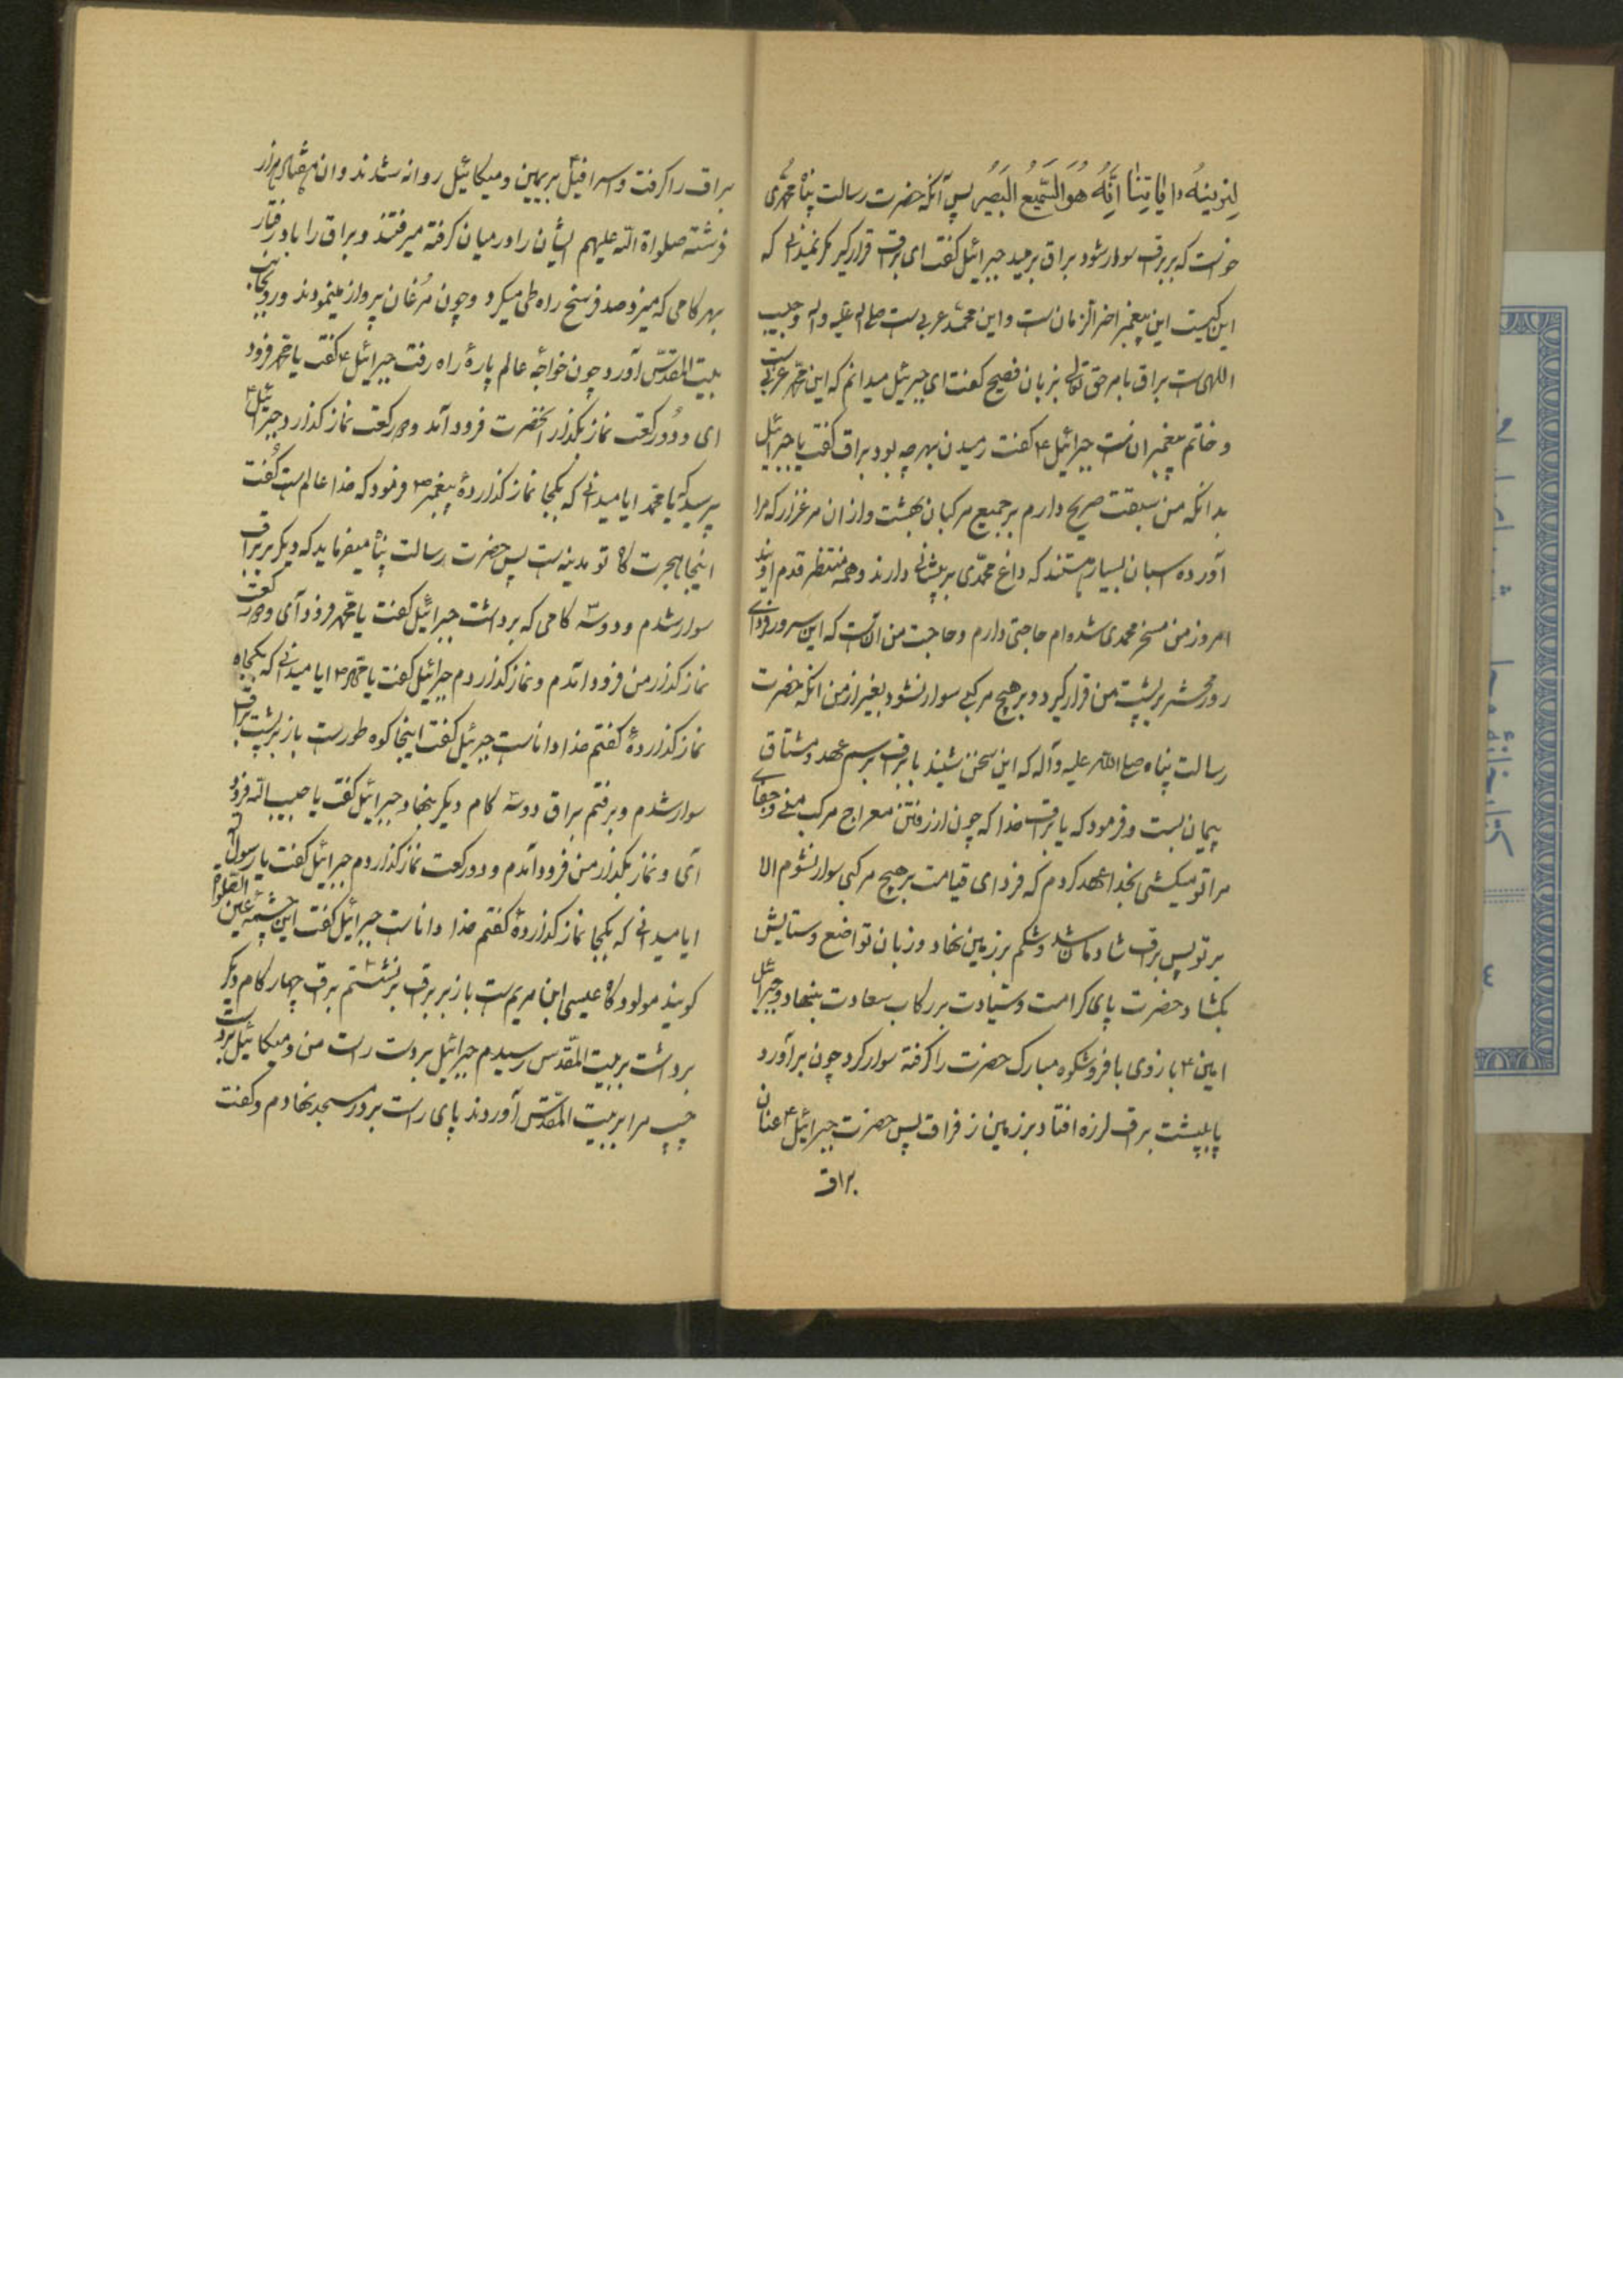 لِنُرِیَهُ مِن ایاتِنا اِنَّهُ هُوَ السَّمیعُ البَصیرُ پس آنکه حضرت رسالت پناه محمدی
خواست که بر براق سوار شود براق برمید جبرائیل گفت ای براق قرار گیر مگر نمیدانی که
این کیست این پیغمبر اخر الزمان است و این محمد عربی است صلی اله علیه و اله و حبیب
اللهی است براق بامر حق تعالی بزبان فصیح گفت ای جبرئیل میدانم که این محمد عربی است
و خاتم پیغمبران است جبرائیل ۴ گفت رمیدن بهر چه بود براق گفت یا جبرائیل
بدانکه من سبقت صریح دارم بر جمیع مرکبان بهشت و از ان مرغزار که مرا
آورده اسبان بسیار هستند که داغ محمدی بر پیشانی دارند و همه منتظر قدم اویند
امروز من مسخر محمدی شده ام حاجتی دارم و حاجت من انست که این سرور فردای
روز محشر بر پشت من قرار گیرد و بر هیچ مرکبی سوار نشود بغیر از من انکه حضرت
رسالت پناه صلی الله علیه و آله که این سخن شنید با براق برسم عهد و مشتاق
پیمان بست و فرمود که یا براق خدا که چون از رفتن معراج مرکب منی و جفای
مرا تو میکشی بخدا عهد کردم که فردای قیامت بر هیچ مرکبی سوار نشوم الا
بر تو پس براق شادمان شد و شکم بر زمین نهاد و زبان تواضع و ستایش
بگشاد حضرت پای کرامت و سیادت بر رکاب سعادت بنهاد و جبرائیل
امین ۴ بازوی با فر و شکوه مبارک حضرت را گرفته سوار کرد چون بر آورد
پا بپشت براق لرزه افتاد بر زمین ز فراق پس حضرت جبرائیل ۴ عنان
براق
براق را گرفت و اسرافیل بر یمین و میکائیل روانه شدند و ان هفتاد هزار
فرشته صلواة الله علیهم ایشان را در میان گرفته میرفتند و براق را باد رفتار
بهر کامی که میزد صد فرسخ راه طی میکرد و چون مرغان پرواز مینمودند و رو بجانب
بیت المقدس آورد چون خواجه عالم پارهٔ راه رفت جبرائیل ۴ گفت یا محمد فرود
ای و دو رکعت نماز بگذار انحضرت فرود آمد و دو رکعت نماز گذارد جبرائیل ۴
پرسید که یا محمد ایا میدانی که بکجا نماز گذاردهٔ پیغمبر ص فرمود که خدا عالم است گفت
اینجا هجرت گاه تو مدینه است پس حضرت رسالت پناه میفرماید که دیگر بر براق
سوار شدم و دو سه کامی که برداشت جبرائیل گفت یا محمد فرود آی و دو رکعت
نماز گذار من فرود آمدم و نماز گذاردم جبرائیل گفت یا محمد ص ایا میدانی که بکجاه
نماز گذاردهٔ گفتم خدا داناست جبرئیل گفت اینجا کوه طور است باز بر پشت براق
سوار شدم و برفتم براق دو سه کام دیگر بنهاد جبرائیل گفت یا حبیب الله فرود
آی و نماز بگذار من فرود آمدم و دو رکعت نماز گذاردم جبرائیل گفت یا رسول الله
ایا میدانی که بکجا نماز گذاردهٔ گفتم خدا داناست جبرائیل گفت این چشمه عین
گویند مولود گاه عیسی ابن مریم است باز بر براق بر نشستم براق چهار کام دیگر
برداشت بر بیت المقدس رسیدم جبرائیل بر دست راست من و میکائیل بر دست
چپ مرا بر بیت المقدس آوردند پای راست بر در مسجد نهادم و گفت